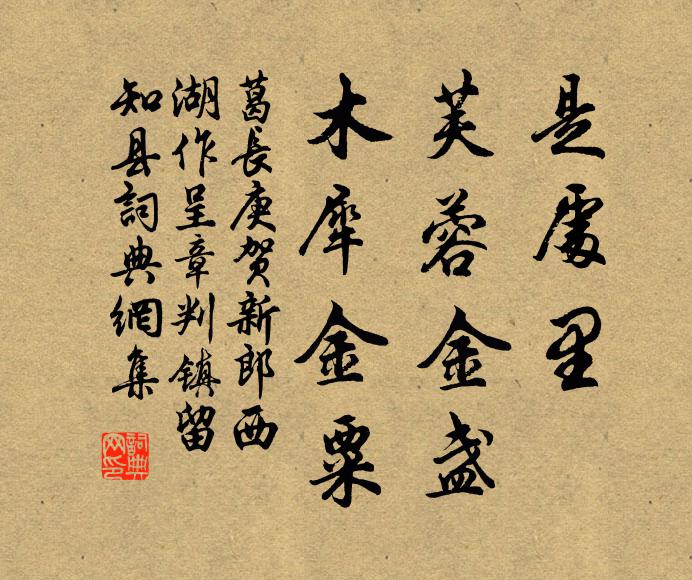 是處里
芙蓉金盞
木犀金粟
葛長庚賀新郎西
湖作呈章判鎮留
知县詞典網集
詞典网印